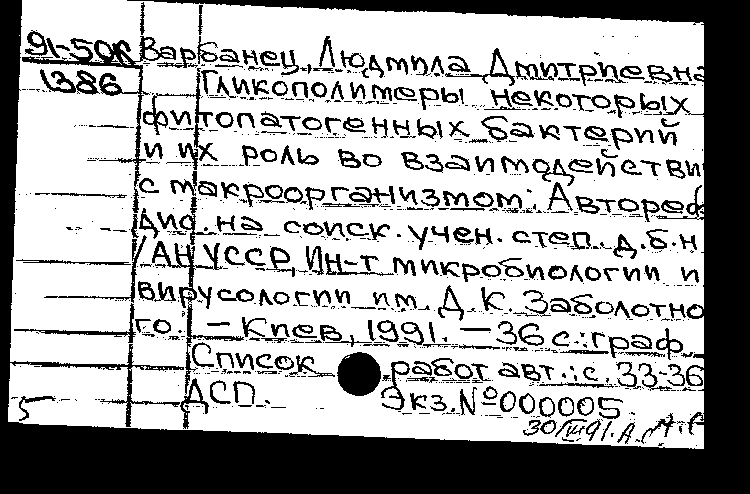 91-50К Варбанец, Людмила Дмитриевна
1386 Гликополимеры некоторых
фитопатогенных бактерий
и их роль во взаимодействи
с макроорганизмом: Автореф
дис. на соиск. учен. степ. д.б.н
/АН УССР, Ин-т микробиологии и
вирусологии им. Д.К. Заболотно
го. – Киев, 1991. – 36 с.: граф.
Список работ авт.: с. 33-36
ДСП. Экз. № 000005.
5 30/III 91.